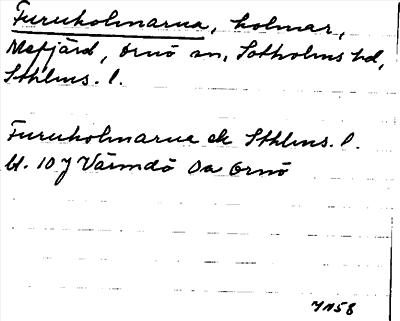 Furuholmarna, holmar,
Mefjärd, Ornö sn, Sotholms hd,
Sthlms. l.
Furuholmarna ek Sthlms. l.
bl. 10 J Värmdö Oa Ornö
JN58